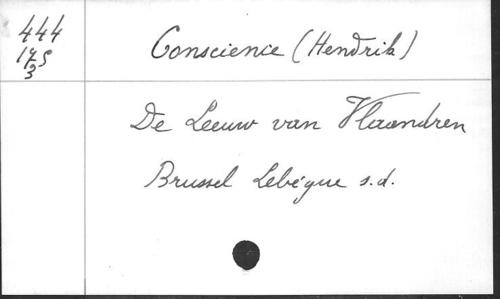 444
175
3
Conscience (Hendrik)
De Leeuw van Vlaandren
Brussel Lebégue s.d.